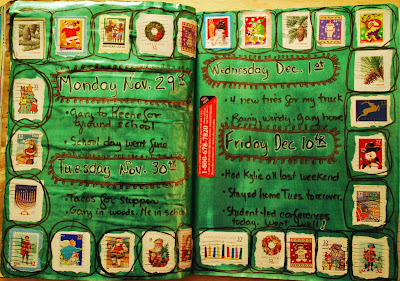 Monday Nov. 29th
• Gary to Keene for
ground school
• School day went fine
Tuesday Nov. 30th
• Tacos for supper
• Gary in woods. Me in school
Wednesday Dec. 1st
• 4 new tires for my truck
• Rainy, windy. Gary home
1-800-678-7820
Friday Dec. 10th
• Had Kylie all last weekend
• Stayed home Tues. to recover.
• Student-led conferences
today. Went well!